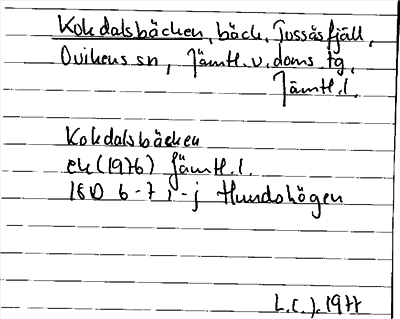 Kokdalsbäcken, bäck, Tossåsfjäll,
Ovikens sn, Jämtl. v. doms. tg,
Jämtl. l.
Kokdalsbäcken
ek (1976) Jämtl. l.
18D 6-7 i-j Hundshögen
L.C.J. 1977